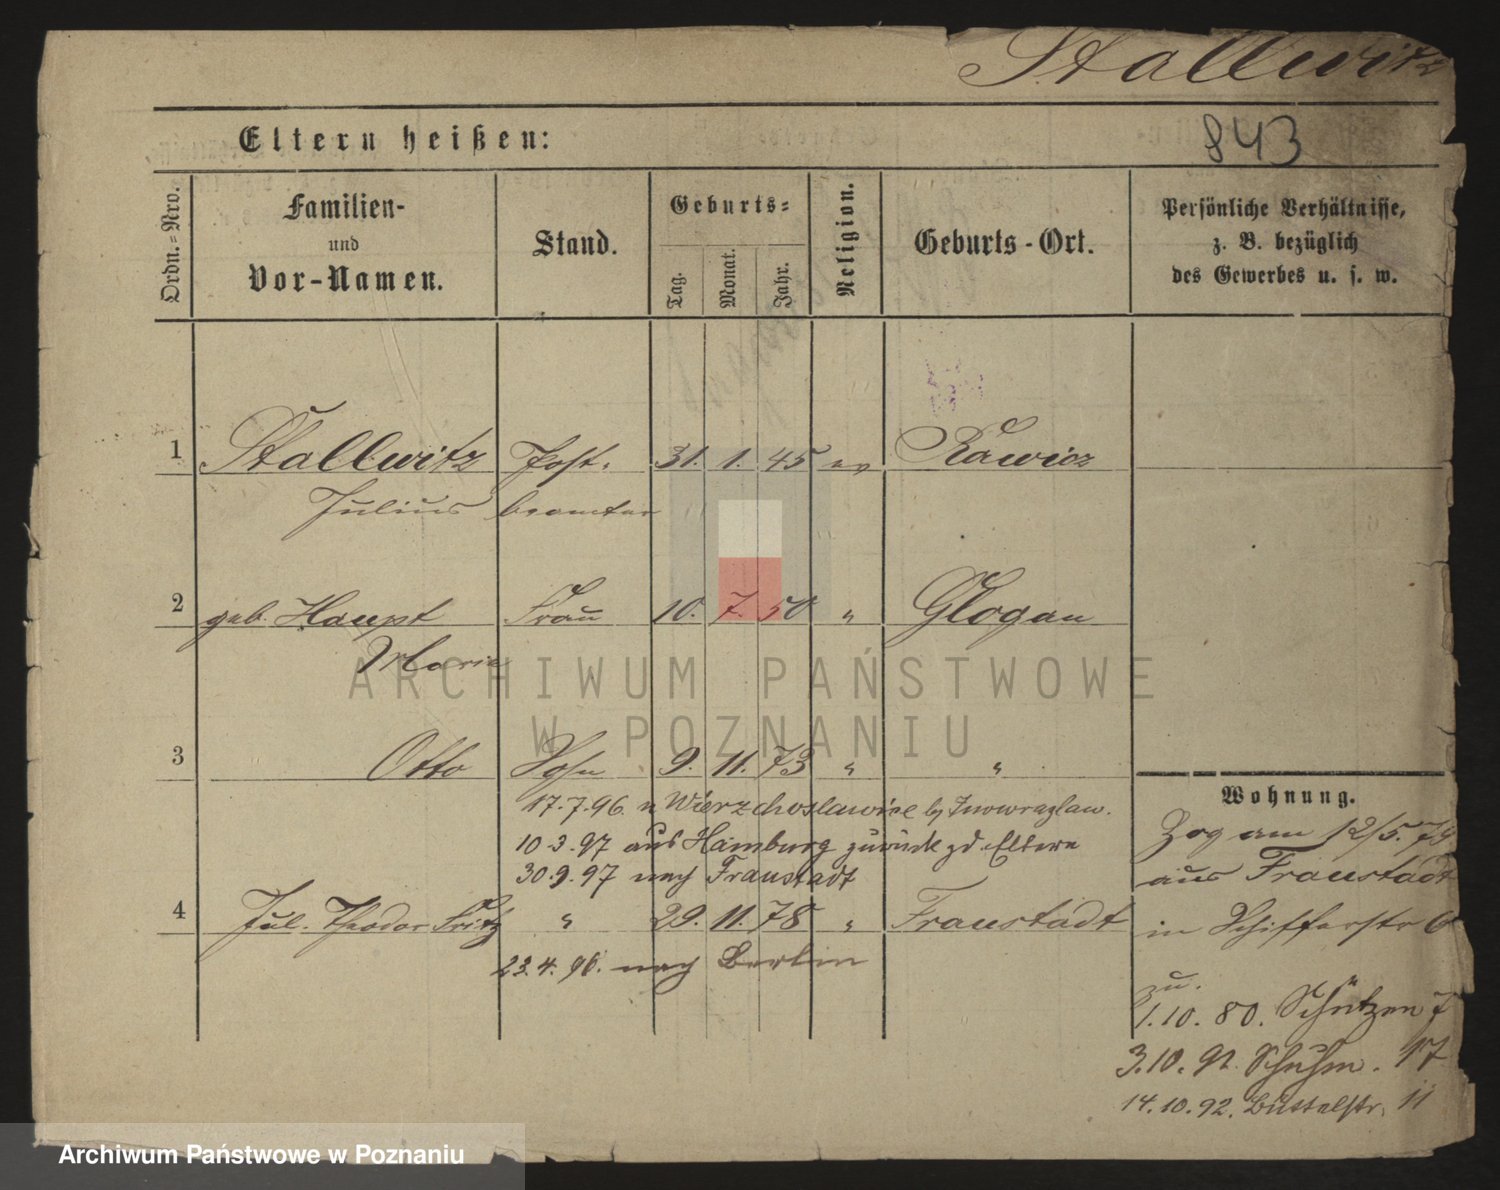 Stallwitz
843
Eltern heißen:
Ordn.=Nro.
Familien-
und
Vor-Namen.
Stand.
Geburts=
Tag.
Monat.
Jahr.
Religion.
Geburts-Ort.
Persönliche Verhältnisse,
z. B. bezüglich
des Gewerbes u. s. w.
1 Stallwitz Post- 31. 1. 45 ev Rawicz
Julius beamter
2 geb. Haupt Frau 10. 7. 50 " Glogau
Marie
3 Otto Sohn 9. 11. 73 " "
17.7.96. n Wierzchoslawice by Inowrazlaw.
10.3.97 aus Hamburg zurück zd. Eltern
30.9.97 nach Fraustadt
4 Jul. Theodor Fritz " 29. 11. 78 " Fraustadt
23.4.96. nach Berlin
Wohnung.
Zog am 12/5. 79
aus Fraustadt
in Schifferstr 6
zu.
1.10.80. Schützen 7
3.10.91. Schuhm. 17
14.10.92. Büttelstr. 11
ARCHIWUM PAŃSTWOWE
W POZNANIU
Archiwum Państwowe w Poznaniu